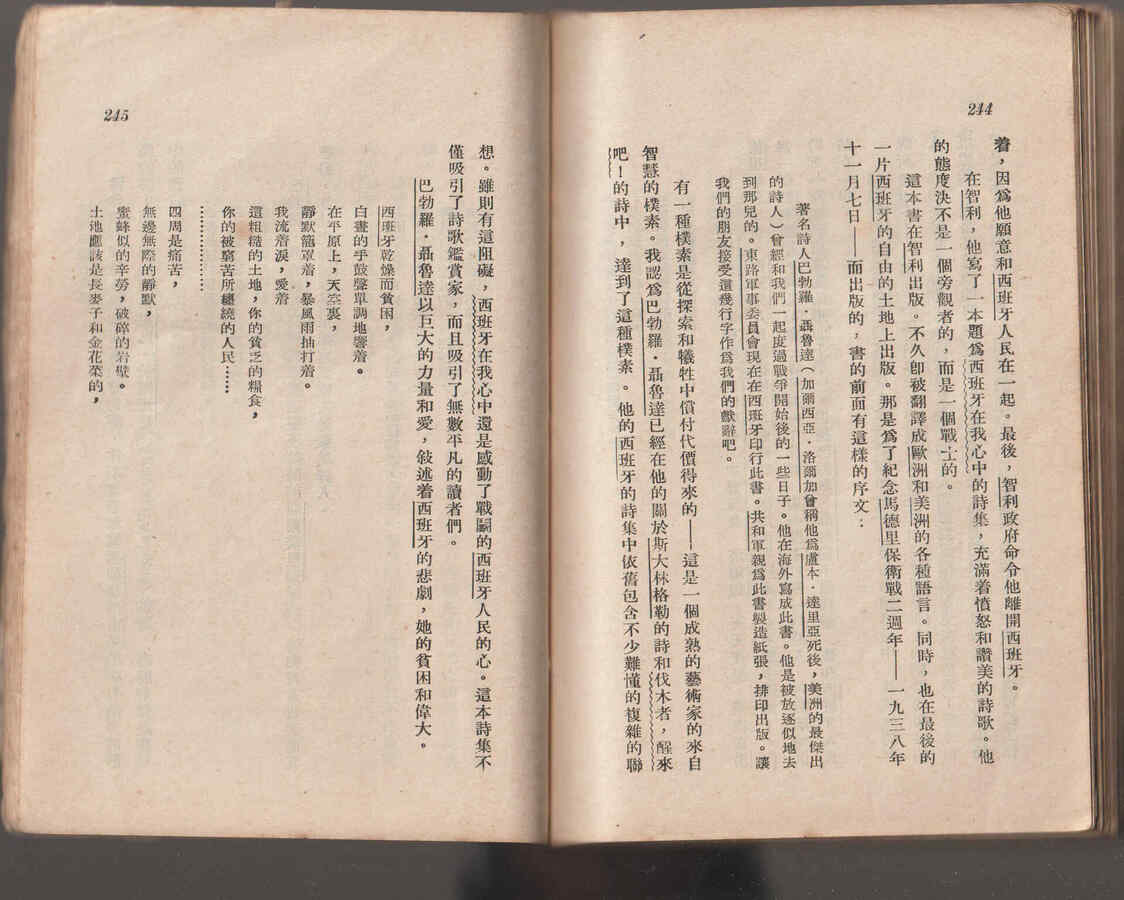 244
着，因爲他願意和西班牙人民在一起。最後，智利政府命令他離開西班牙。
在智利，他寫了一本題爲西班牙在我心中的詩集，充滿着憤怒和讚美的詩歌。他
的態度決不是一個旁觀者的，而是一個戰士的。
這本書在智利出版。不久卽被翻譯成歐洲和美洲的各種語言。同時，也在最後的
一片西班牙的自由的土地上出版。那是爲了紀念馬德里保衛戰二週年——一九三八年
十一月七日——而出版的，書的前面有這樣的序文：
著名詩人巴勃羅·聶魯達（加爾西亞·洛爾加曾稱他爲盧本·達里亞死後，美洲的最傑出
的詩人）曾經和我們一起度過戰爭開始後的一些日子。他在海外寫成此書。他是被放逐似地去
到那兒的。東路軍事委員會現在在西班牙印行此書。共和軍親爲此書製造紙張，排印出版。讓
我們的朋友接受這幾行字作爲我們的獻辭吧。
有一種樸素是從探索和犧牲中償付代價得來的——這是一個成熟的藝術家的來自
智慧的樸素。我認爲巴勃羅·聶魯達已經在他的關於斯大林格勒的詩和伐木者，醒來
吧！的詩中，達到了這種樸素。他的西班牙的詩集中依舊包含不少難懂的複雜的聯
245
想。雖則有這阻礙，西班牙在我心中還是感動了戰鬭的西班牙人民的心。這本詩集不
僅吸引了詩歌鑑賞家，而且吸引了無數平凡的讀者們。
巴勃羅·聶魯達以巨大的力量和愛，敍述着西班牙的悲劇，她的貧困和偉大。
西班牙乾燥而貧困，
白晝的手鼓聲單調地響着。
在平原上，天空裏，
靜默籠罩着，暴風雨抽打着。
我流着淚，愛着
這粗糙的土地，你的貧乏的糧食，
你的被窮苦所纏繞的人民……
………………
四周是痛苦，
無邊無際的靜默，
蜜蜂似的辛勞，破碎的岩壁。
土地應該是長麥子和金花菜的，